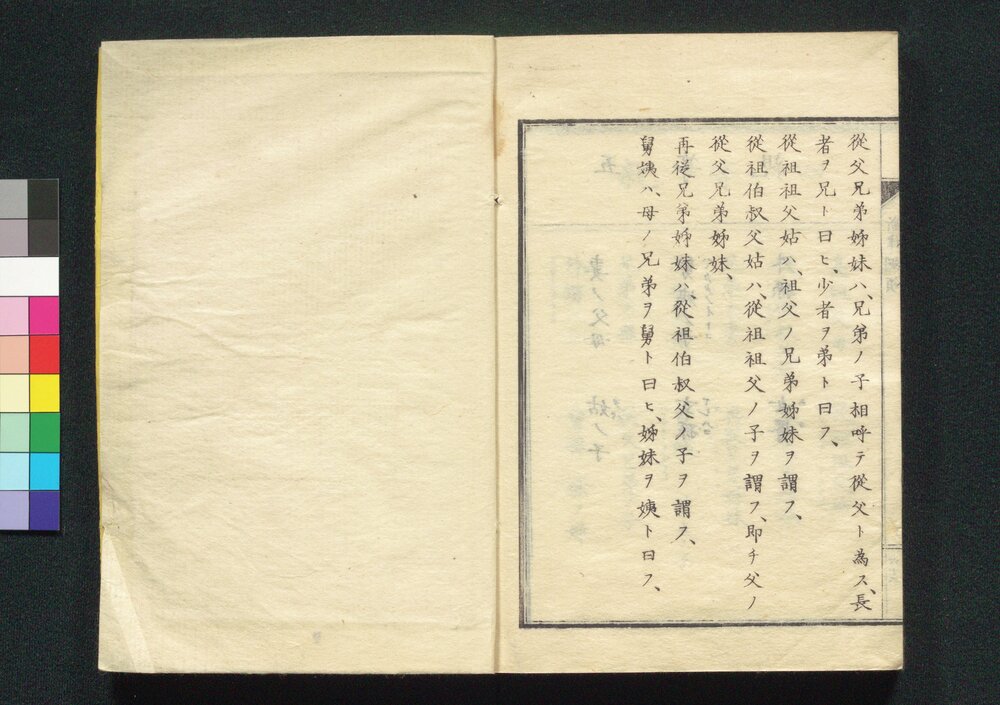 從父兄弟姊妹ハ、兄弟ノ子相呼テ從父ト為ス、長
者ヲ兄ト曰ヒ、少者ヲ弟ト曰フ、
從祖祖父姑ハ、祖父ノ兄弟姊妹ヲ謂フ、
從祖伯叔父姑ハ、從祖祖父ノ子ヲ謂フ、即チ父ノ
從父兄弟姊妹、
再從兄弟姊妹ハ、從祖伯叔父ノ子ヲ謂フ、
舅姨ハ、母ノ兄弟ヲ舅ト曰ヒ、姊妹ヲ姨ト曰フ、